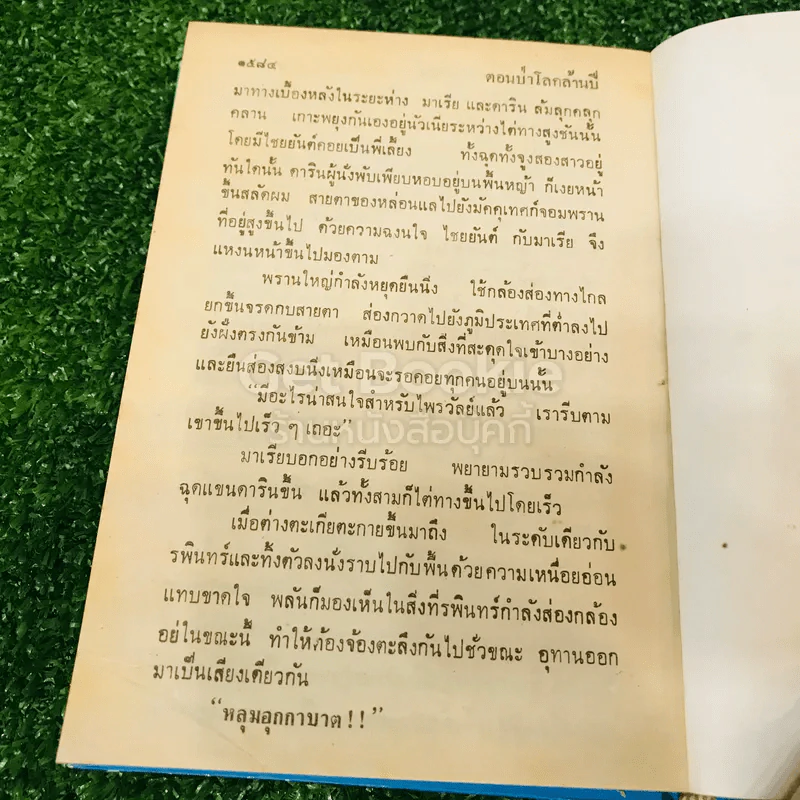 ๑๕๘๔ ตอนป่าโลกล้านปี
มาทางเบื้องหลังในระยะห่าง มาเรีย และดาริน ล้มลุกคลุก
คลาน เกาะพยุงกันเองอยู่นัวเนียระหว่างไต่ทางสูงชันนั้น
โดยมีไชยยันต์คอยเป็นพี่เลี้ยง ทั้งฉุดทั้งจูงสองสาวอยู่
ทันใดนั้น ดารินผู้นั่งพับเพียบหอบอยู่บนพื้นหญ้า ก็เงยหน้า
ขึ้นสลัดผม สายตาของหล่อนแลไปยังมัคคุเทศก์จอมพราน
ที่อยู่สูงขึ้นไป ด้วยความฉงนใจ ไชยยันต์ กับมาเรีย จึง
แหงนหน้าขึ้นไปมองตาม
พรานใหญ่กำลังหยุดยืนนิ่ง ใช้กล้องส่องทางไกล
ยกขึ้นจรดกบสายตา ส่องกวาดไปยังภูมิประเทศที่ต่ำลงไป
ยังฝั่งตรงกันข้าม เหมือนพบกับสิ่งที่สะดุดใจเข้าบางอย่าง
และยืนส่องสงบนิ่งเหมือนจะรอคอยทุกคนอยู่บนนั้น
“มีอะไรน่าสนใจสำหรับไพรวัลย์แล้ว เรารีบตาม
เขาขึ้นไปเร็ว ๆ เถอะ”
มาเรียบอกอย่างรีบร้อย พยายามรวบรวมกำลัง
ฉุดแขนดารินขึ้น แล้วทั้งสามก็ไต่ทางขึ้นไปโดยเร็ว
เมื่อต่างตะเกียตะกายขึ้นมาถึง ในระดับเดียวกับ
รพินทร์และทิ้งตัวลงนั่งราบไปกับพื้นด้วยความเหนื่อยอ่อน
แทบขาดใจ พลันก็มองเห็นในสิ่งที่รพินทร์กำลังส่องกล้อง
อยู่ในขณะนี้ ทำให้ต้องจ้องตะลึงกันไปชั่วขณะ อุทานออก
มาเป็นเสียงเดียวกัน
“หลุมอุกกาบาต!!”
Get Bookie
ร้านหนังสือบุคกี้